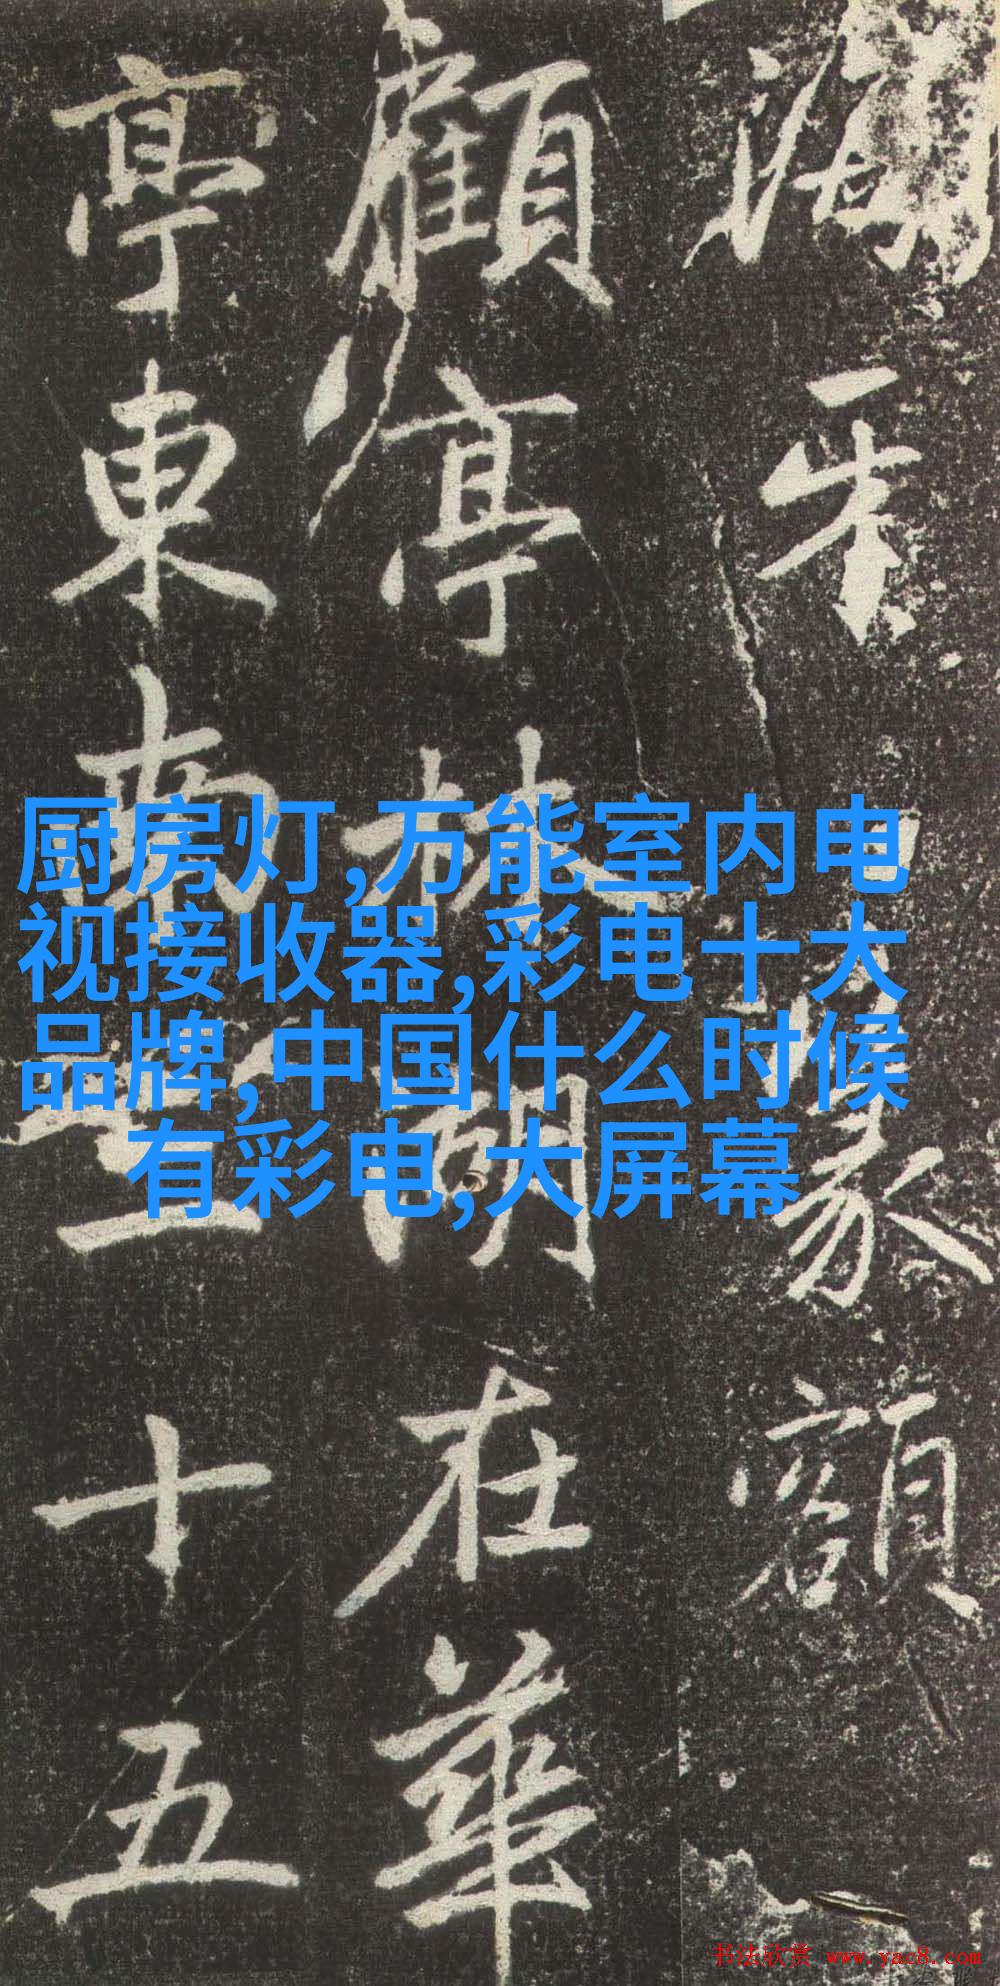 篆額
顧亭林湖在華
亭東南三十五
厨房灯,万能室内电
视接收器,彩电十大
品牌,中国什么时候
有彩电,大屏幕
书法欣赏 www.yac8.com